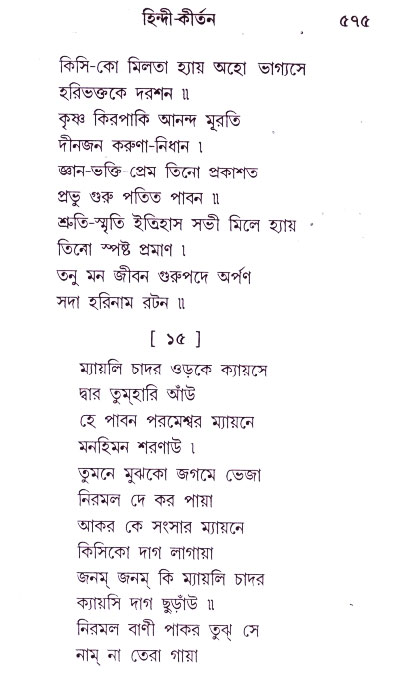 হিন্দী-কীর্তন ৫৭৫
কিসি-কো মিলতা হ্যায় অহো ভাগ্যসে
হরিভক্তকে দরশন ॥
কৃষ্ণ কিরপাকি আনন্দ মূরতি
দীনজন করুণা-নিধান ।
জ্ঞান-ভক্তি-প্রেম তিনো প্রকাশত
প্রভু গুরু পতিত পাবন ॥
শ্রুতি-স্মৃতি ইতিহাস সভী মিলে হ্যায়
তিনো স্পষ্ট প্রমাণ ।
তনু মন জীবন গুরুপদে অর্পণ
সদা হরিনাম রটন ॥
[ ১৫ ]
ম্যায়লি চাদর ওড়কে ক্যায়সে
দ্বার তুম্‌হারি আঁউ
হে পাবন পরমেশ্বর ম্যায়নে
মনহিমন শরণাউ ।
তুমনে মুঝকো জগমে ভেজা
নিরমল দে কর পায়া
আকর কে সংসার ম্যায়নে
কিসিকো দাগ লাগায়া
জনম্ জনম্ কি ম্যায়লি চাদর
ক্যায়সি দাগ ছুড়াঁউ ॥
নিরমল বাণী পাকর তুঝ্ সে
নাম্ না তেরা গায়া